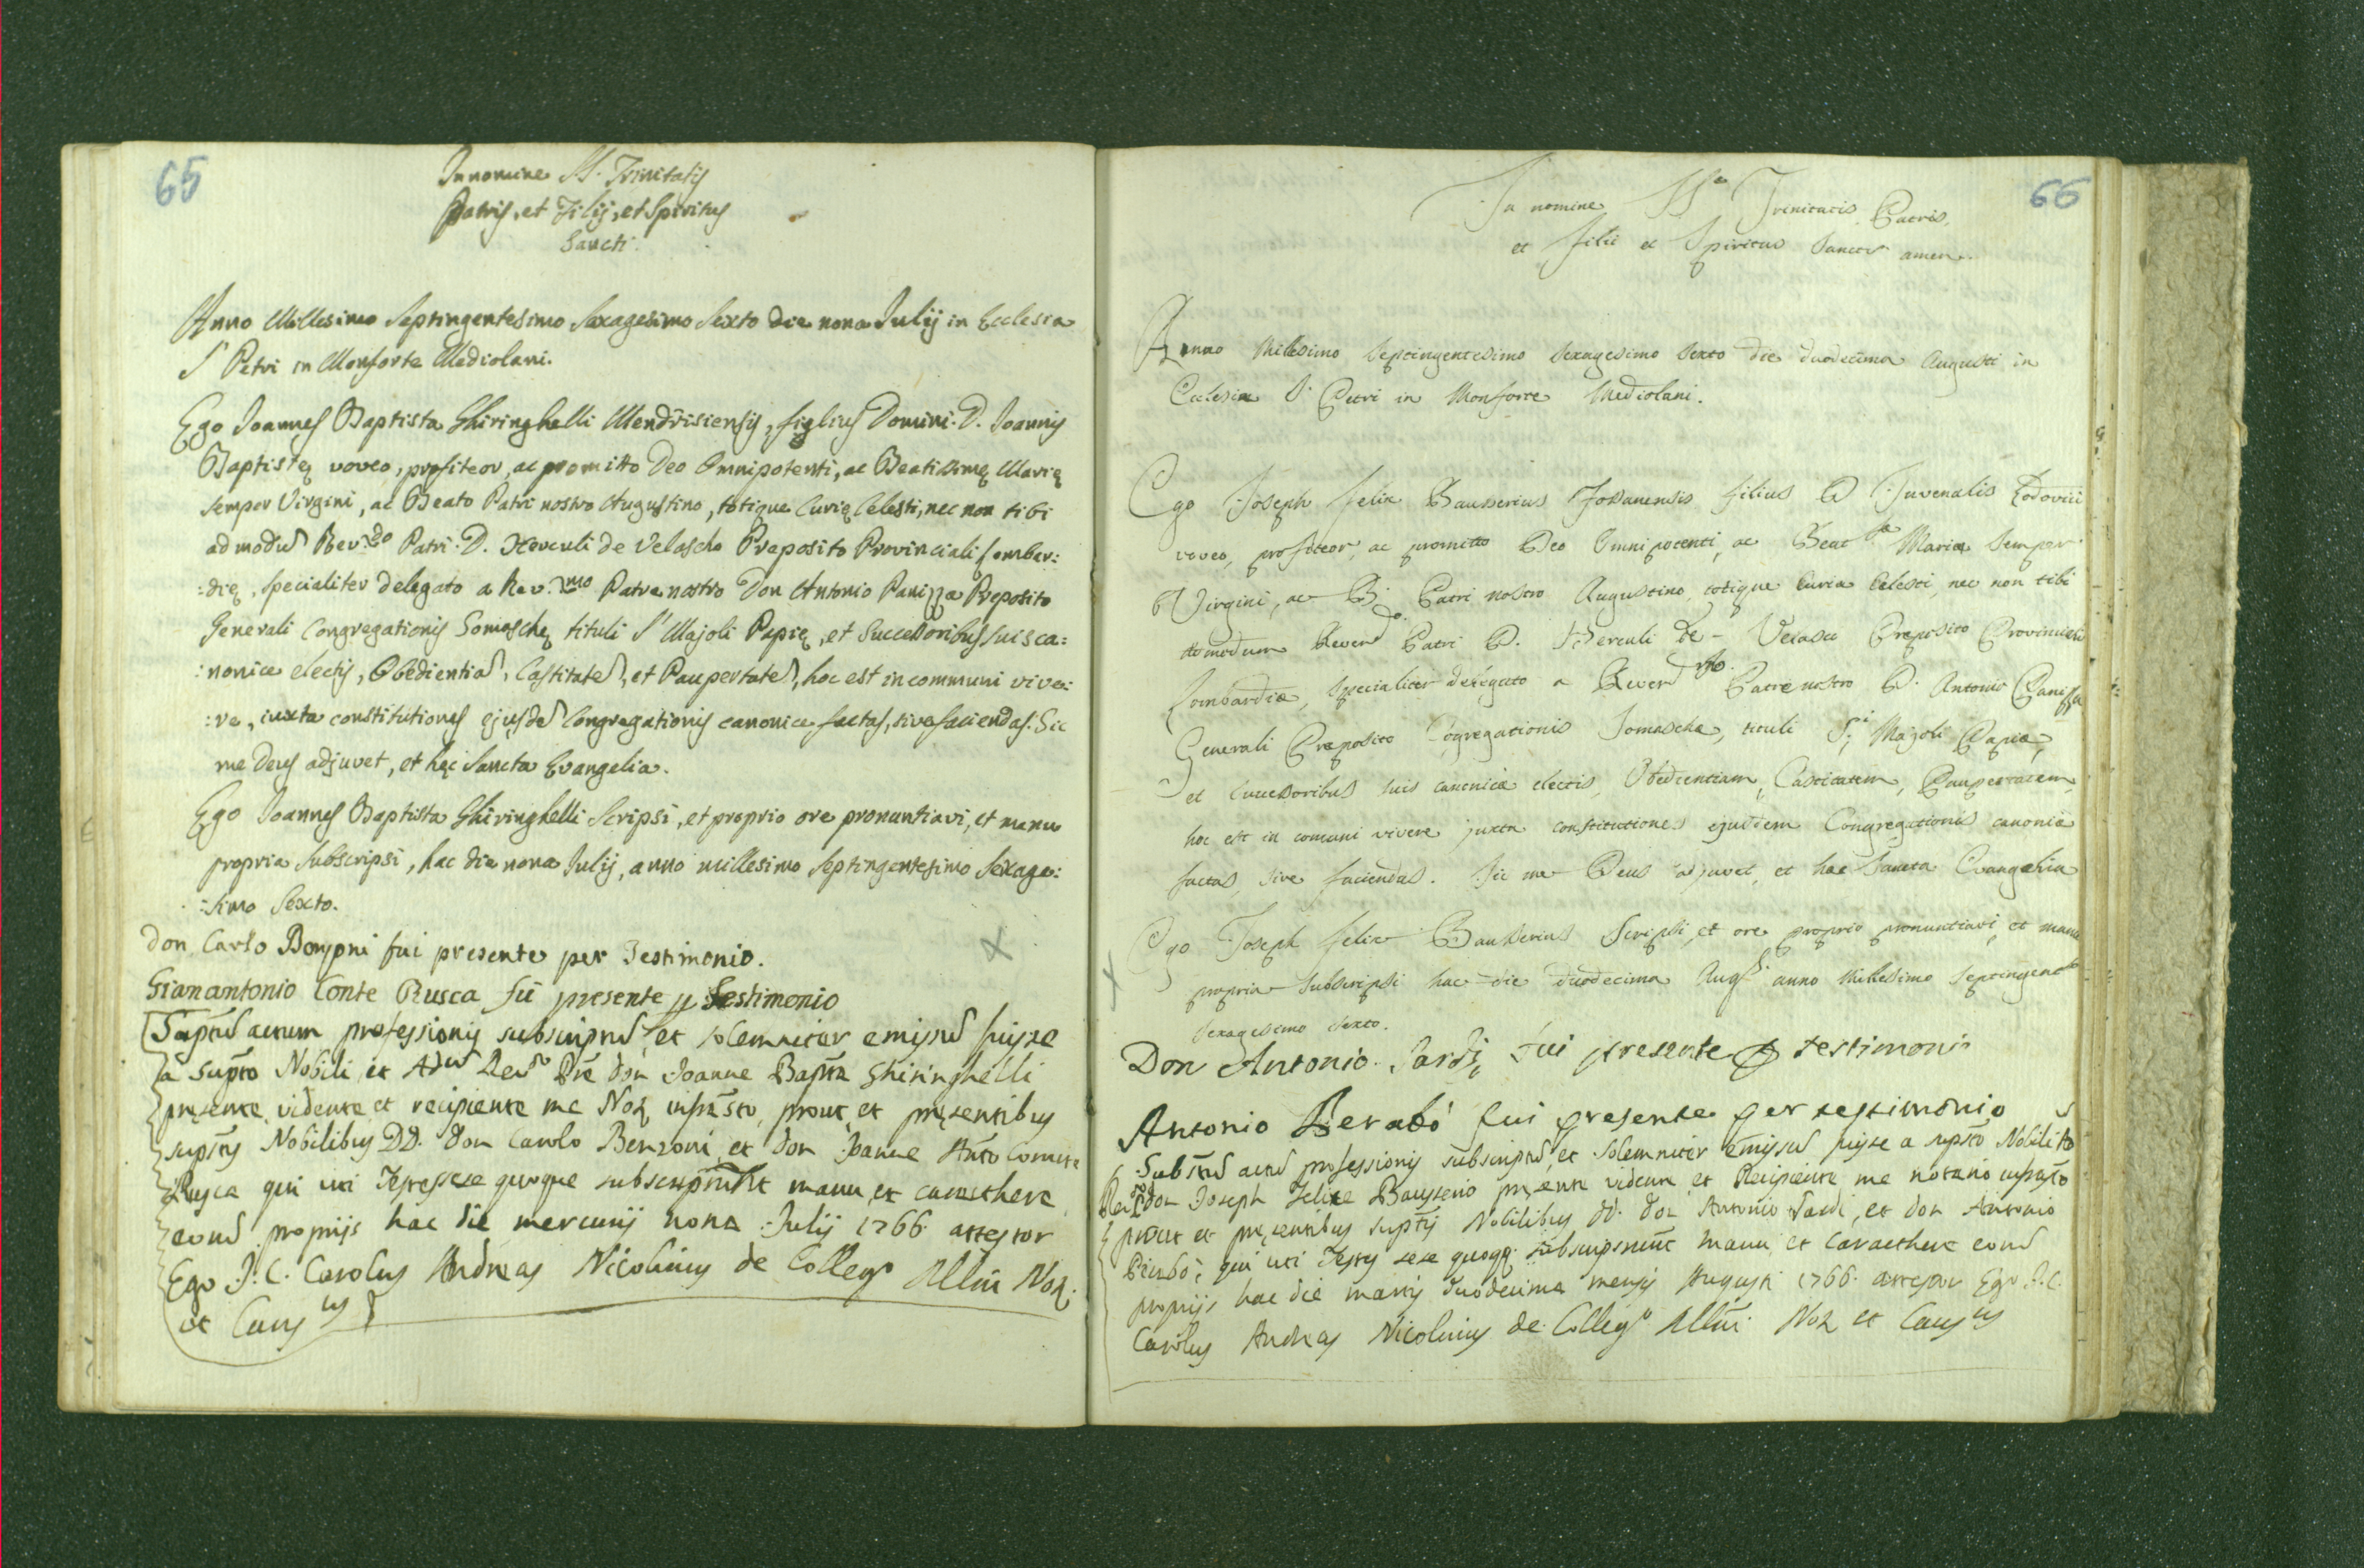 65
In nomine SS. Trinitatis
Patris, et Filij, et Spiritus
Sancti.
Anno Millesimo Septingentesimo Sexagesimo Sexto die nona Julij in Ecclesia
S. Petri in Monforte Mediolani.
Ego Joannes Baptista Ghiringhelli Mendrisiensis, figlius Domini D. Joannis
Baptistę voveo, profiteor, ac promitto Deo Omnipotenti, ac Beatissimę Marię
semper Virgini, ac Beato Patri nostro Augustino, totique Curię Celesti, nec non tibi
ad modũ Rev.do Patri D. Herculi de Velascho Preposito Provinciali Lomber:
:dię, specialiter delegato a Rev.mo Patre nostro Don Antonio Panizza Preposito
Generali Congregationis Somaschę tituli S. Majoli Papię, et Successoribus suis ca:
:nonice electis, Obedientiã, Castitatẽ, et Paupertatẽ, hoc est in communi vive:
:re, iuxta constitutiones ejusdẽ Congregationis canonice factas, sive faciendas. Sic
me Deus adjuvet, et hęc Sancta Evangelia.
Ego Joannes Baptista Ghiringhelli Scripsi, et proprio ore pronuntiavi, et manu
propria subscripsi, hac die nona Julij, anno millesimo Septingentesimo Sexage:
:simo Sexto.
Don Carlo fui presente per Testimonio.
Gianantonio Conte Rusca fui presente p Testimonio
actum professionis subscriptũ, et solemniter emissũ fuisse
a supto Nobili, et Adm Revdo Dre don Joanne Bapta Ghiringhelli
pręsente, vidente, et recipiente me Not infrasto, prout, et pręsentibus
suptis Nobilibus DD. don Carolo Benzoni, et don Joanne Anto Comite
Rusca qui uti Testes sese quoque subscripserunt manu, et caracthere
eorũ proprijs hac die mercurij nona Julij 1766 attestor
Ego J. C. Carolus Andreas Nicolinus de Collego Mlni Not.
et Caus
66
In nomine SS. Trinitatis Patris,
et Filii et Spiritus Sancti amen.
Anno Millesimo Septingentesimo sexagesimo sexto die duodecima Augusti in
Ecclesia S. Petri in Monforte Mediolani.
Ego Joseph Felix Bausserius Fossanensis filius D Juvenalis Lodovici
voveo, profiteor, ac promitto Deo Omnipotenti, ac Beat Mariæ semper
Virgini, ac B. Patri nostro Augustino, totique Curiæ Celesti, nec non tibi
admodum Reverdo. Patri D. Herculi De-Velasco Preposito Provinciali
Lombardiæ, specialiter delegato a Reverdmo. Patre nostro D. Antonio Panissa
Generali Præposito Cogregationis Somaschæ, tituli Si Majoli Papiæ,
et successoribus suis canonice electis, Obedientiam, Castitatem, Paupertatem,
hoc est in comuni vivere juxta constitutiones ejusdem Congregationis canonice
factas, sive faciendas. Sic me Deus adjuvet, et hæc Sancta Evangelia
Ego Joseph Felix Bausserius Scripsi, et ore proprio pronuntiavi, et manu
propria subscripsi hac die duodecima Augsti anno millesimo septingento
sexagesimo sexto.
Don Antonio Sardi fui presente p testimonio
Antonio fui presente per testimonio
actũ professionis subscriptũ, et solemniter emissũ fuisse a supsto Nobili
Revdo don Joseph Felice Bausserio pręsente vidente et Recipiente me notario infrasto
prout et pręsentibus suptis Nobilibus dd. don Antonio Sardi, et don Antonio
qui uti Testes sese quoqq. subscripserunt manu, et caracthere eorũ
proprijs hac die martis duodecima mensis Augusti 1766. attestor Ego J. C.
Carolus Andreas Nicolinus de Collego Mlni Not et Caus